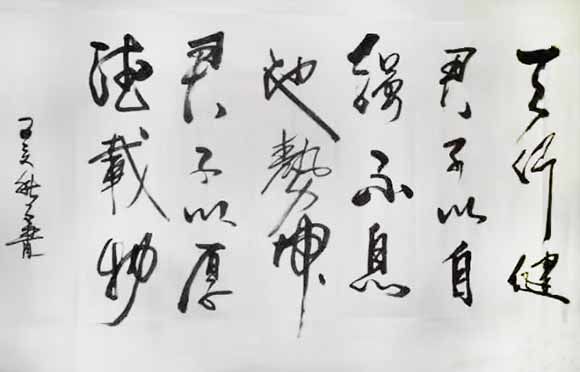 天行健
君子以自
強不息
地勢坤
君子以厚
德載物
亥秋